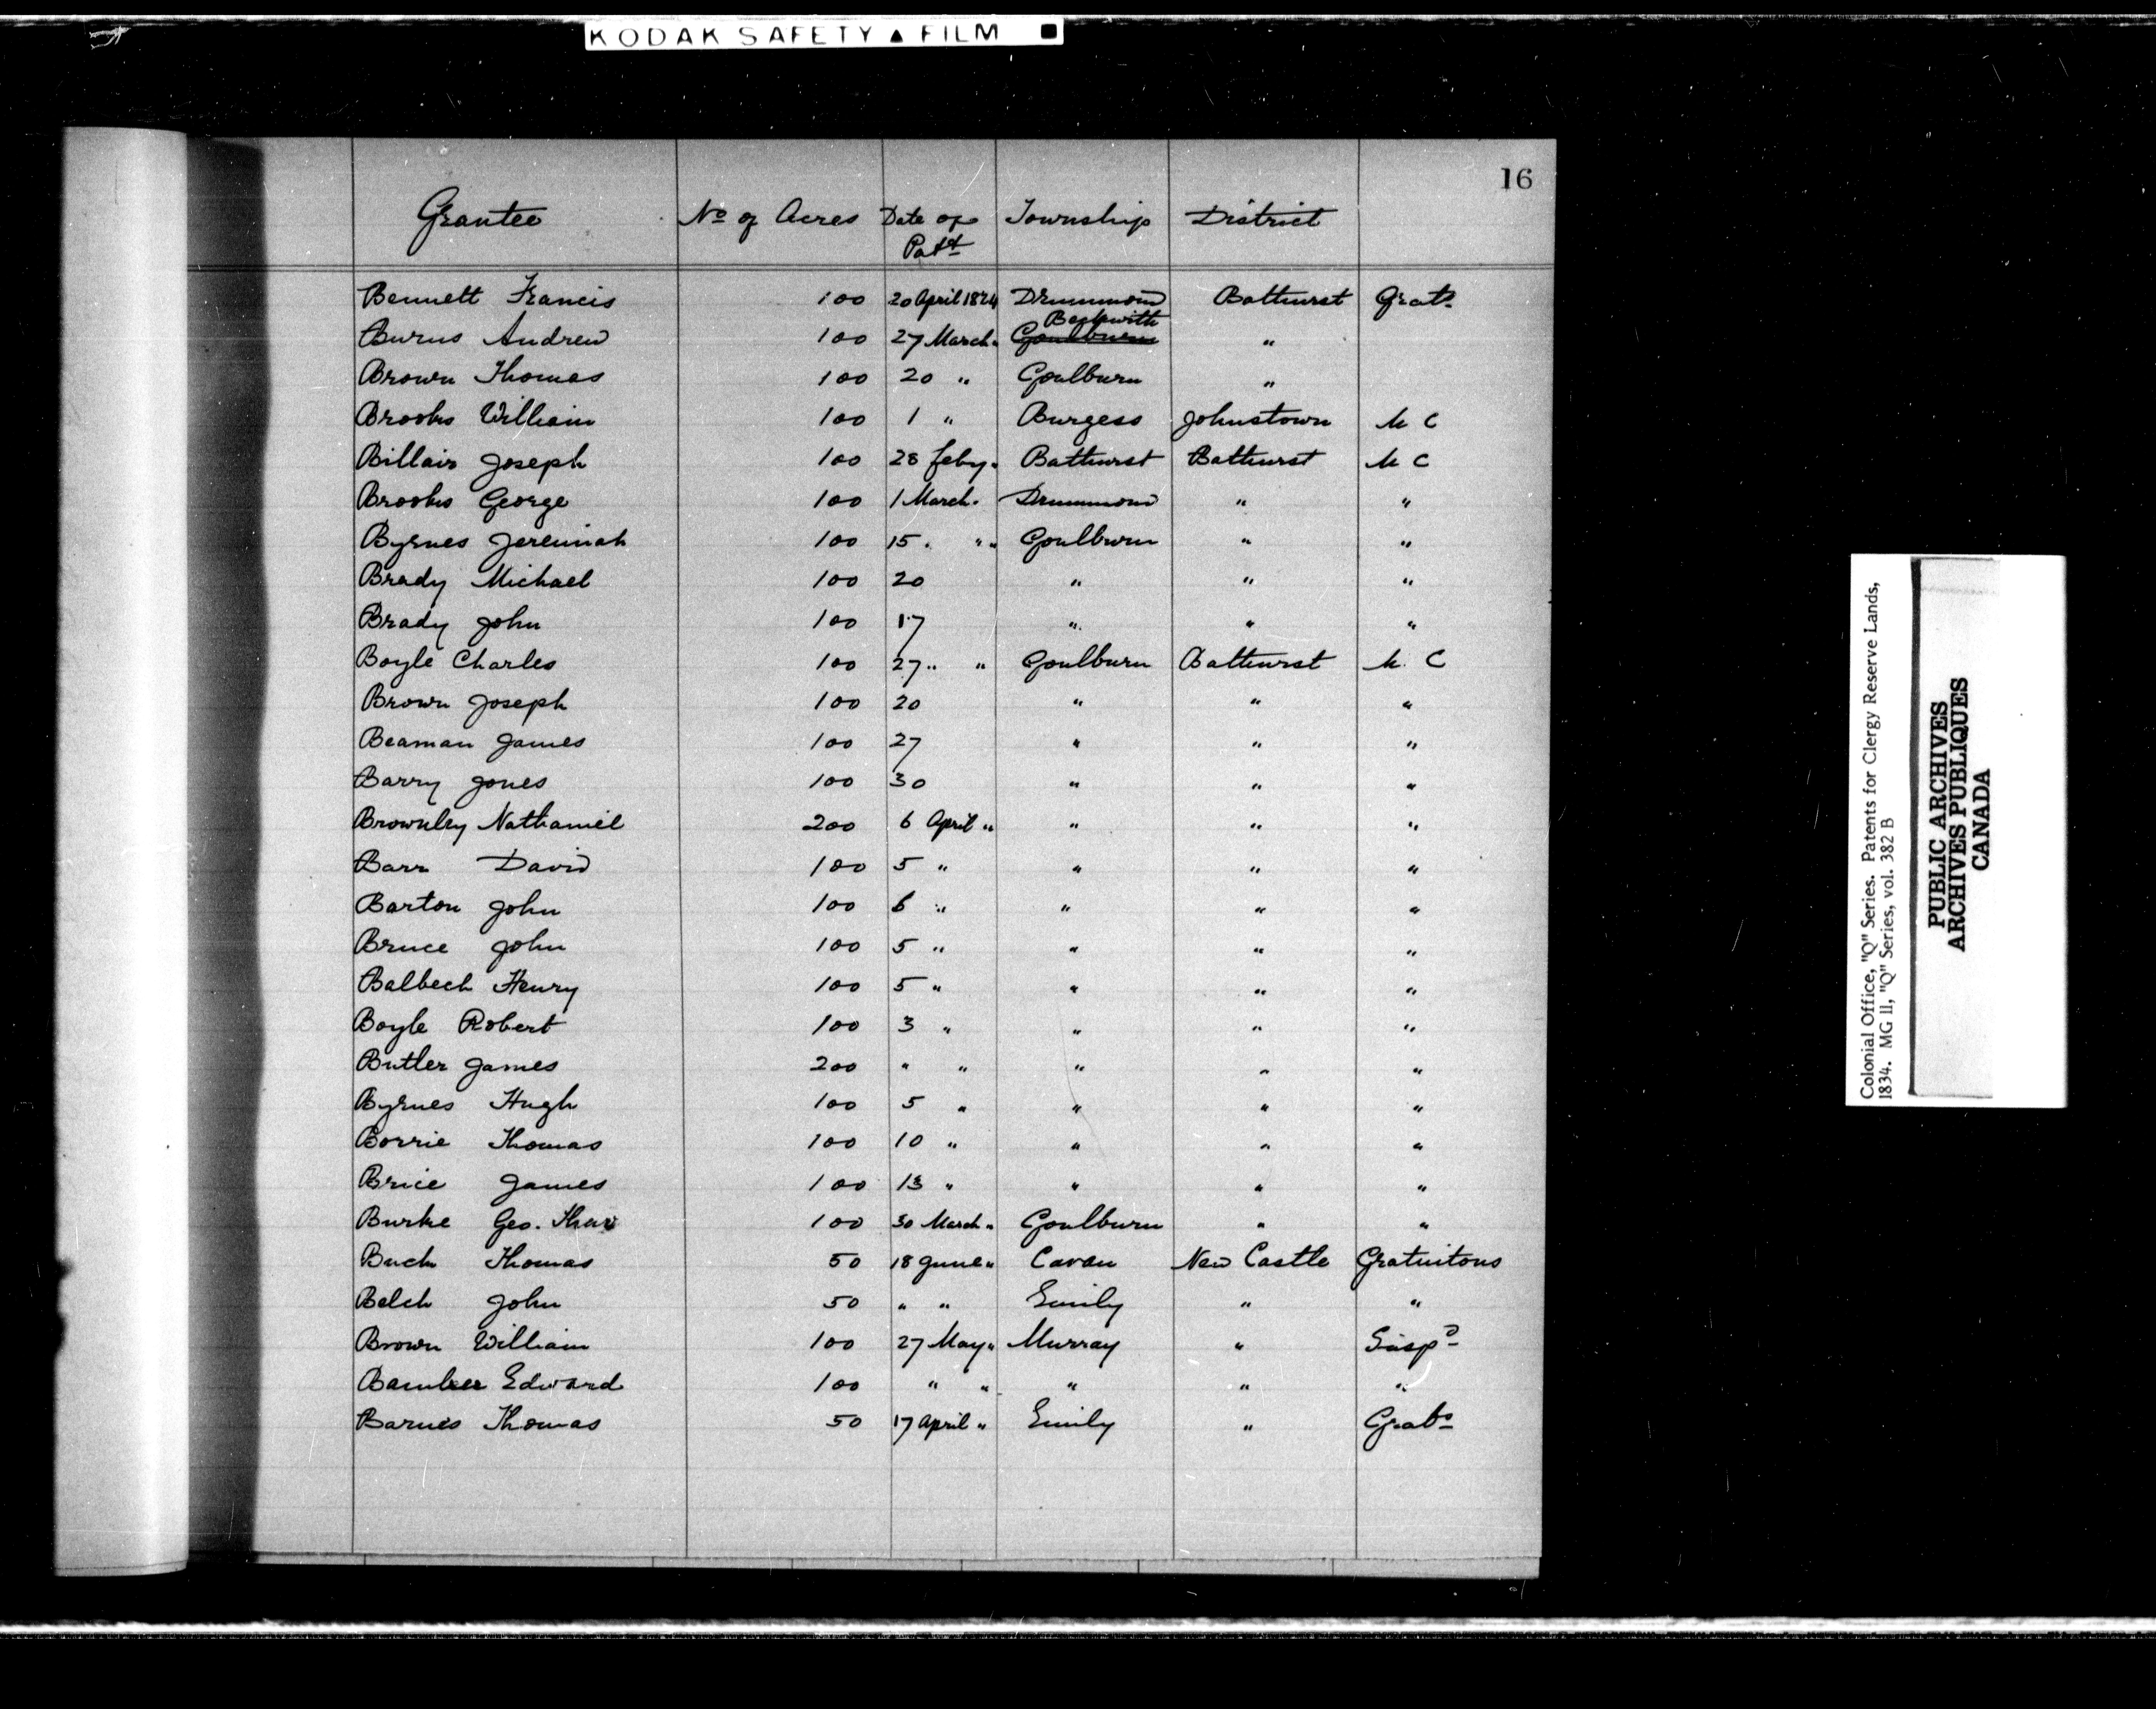 KODAK SAFETY ▲ FILM ■
16
Grantee No of Acres Date of Patt Township District
Bennett Francis 100 20 April 1824 Drummond Bathurst Grats
Burns Andrew 100 27 March " Beckwith Goulburn "
Brown Thomas 100 20 " Goulburn "
Brooks William 100 1 " Burgess Johnstown M C
Billair Joseph 100 28 feby " Bathurst Bathurst M C
Brooks George 100 1 March " Drummond " "
Byrnes Jeremiah 100 15 " " Goulburn " "
Brady Michael 100 20 " " "
Brady John 100 17 " " "
Boyle Charles 100 27 " " Goulburn Bathurst M. C
Brown Joseph 100 20 " " "
Beaman James 100 27 " " "
Barry Jones 100 30 " " "
Brownley Nathaniel 200 6 April " " " "
Barr David 100 5 " " " "
Barton John 100 6 " " " "
Bruce John 100 5 " " " "
Balbech Henry 100 5 " " " "
Boyle Robert 100 3 " " " "
Butler James 200 " " " " "
Byrnes Hugh 100 5 " " " "
Borrie Thomas 100 10 " " " "
Brice James 100 13 " " " "
Burke Geo. Thos 100 30 March " Goulburn " "
Buck Thomas 50 18 June " Cavan New Castle Gratuitous
Belch John 50 " " Emily " "
Brown William 100 27 May " Murray " Susp d
Edward 100 " " " " "
Barnes Thomas 50 17 April " Emily " Grats
Colonial Office, "Q" Series. Patents for Clergy Reserve Lands,
1834. MG 11, "Q" Series, vol. 382 B
PUBLIC ARCHIVES
ARCHIVES PUBLIQUES
CANADA